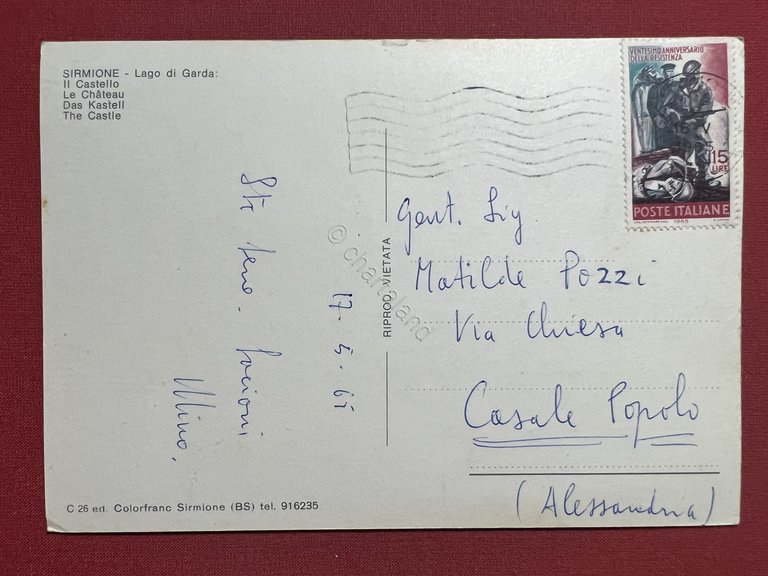 SIRMIONE - Lago di Garda:
Il Castello
Le Château
Das Kastell
The Castle
VENTESIMO ANNIVERSARIO
DELLA RESISTENZA
15
LIRE
POSTE ITALIANE
1965
Gent. Sig
Matilde Pozzi
Via Chiesa
Casale Popolo
(Alessandria)
RIPROD. VIETATA
© chartaland
17-5-65
Mino.
C 26 ed. Colorfranc Sirmione (BS) tel. 916235